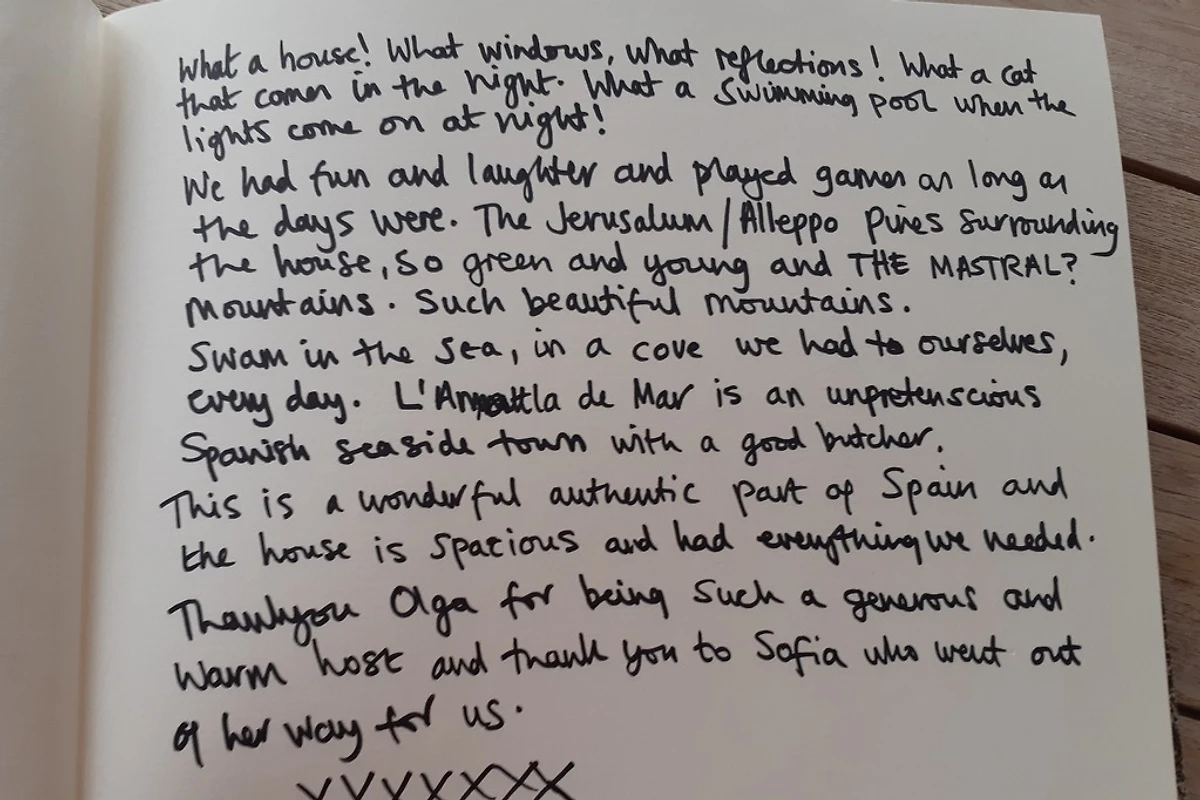 What a house! What windows, what reflections! What a cat
that comes in the night. What a swimming pool when the
lights come on at night!
We had fun and laughter and played games as long as
the days were. The Jerusalum/Alleppo pines surrounding
the house, so green and young and THE MASTRAL?
Mountains. Such beautiful mountains.
Swam in the sea, in a cove we had to ourselves,
every day. de Mar is an unpretenscious
Spanish seaside town with a good butcher.
This is a wonderful authentic part of Spain and
the house is spacious and had everything we needed.
Thankyou Olga for being such a generous and
warm host and thank you to Sofia who went out
of her way for us.
XXXXXXX